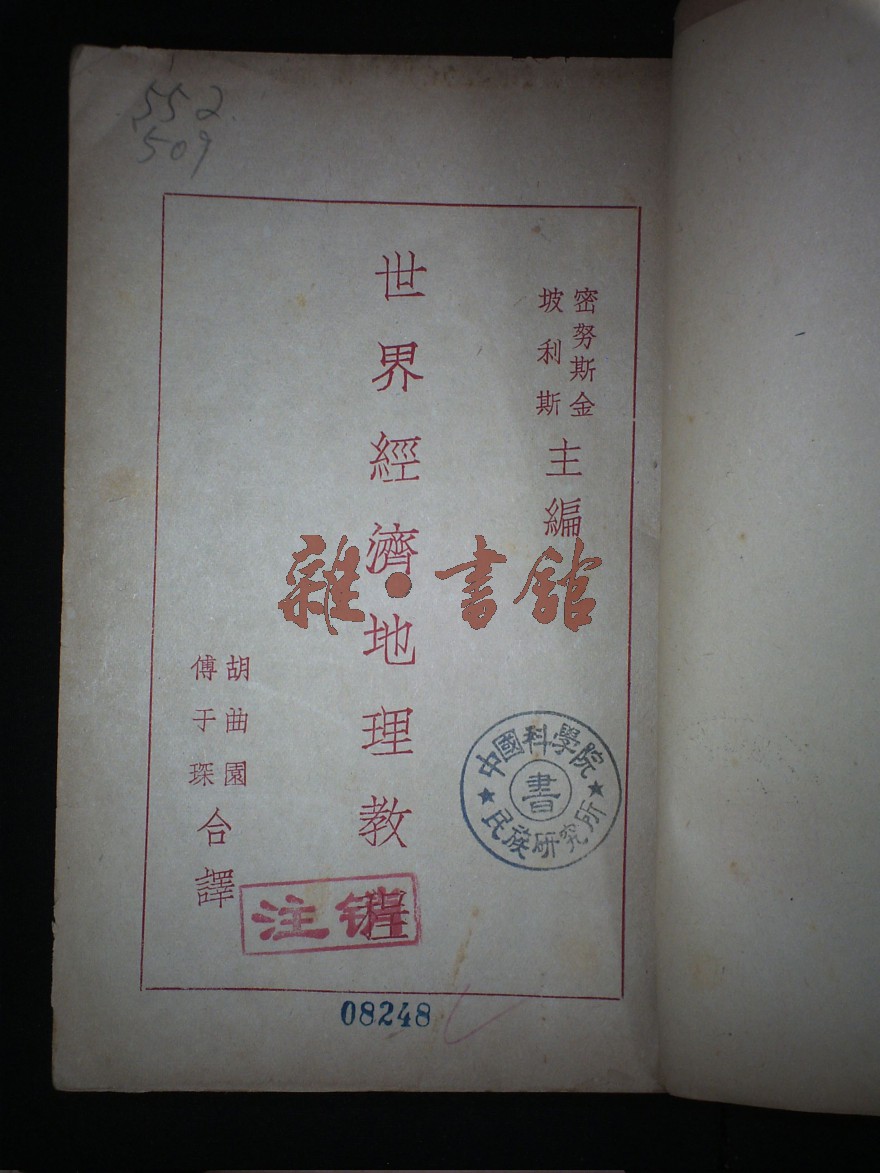 552
509
密努斯金
坡利斯
主編
世界經濟地理教程
胡曲園
傅于琛
合譯
雜·書館
中國科學院
書
民族研究所
注销
08248